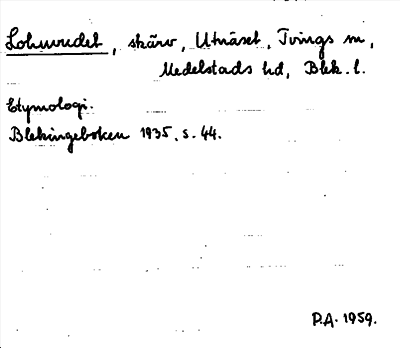 Lohuvudet, skärv, Utnäset, Tvings sn,
Medelstads hd, Blek. l.
Etymologi.
Blekingeboken 1935, s. 44.
P.A. 1959.